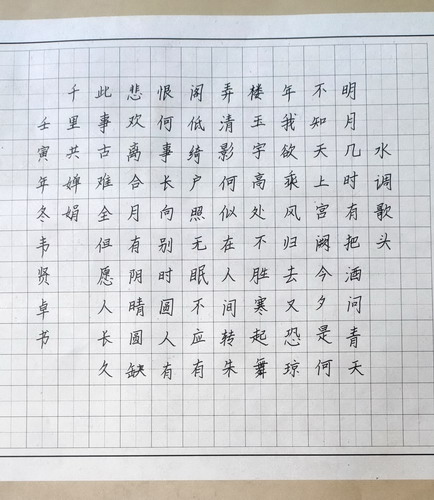 水调歌头
明月几时有把酒问青天
不知天上宫阙今夕是何
年我欲乘风归去又恐琼
楼玉宇高处不胜寒起舞
弄清影何似在人间转朱
阁低绮户照无眠不应有
恨何事长向别时圆人有
悲欢离合月有阴晴圆缺
此事古难全但愿人长久
千里共婵娟
壬寅年冬韦贤卓书